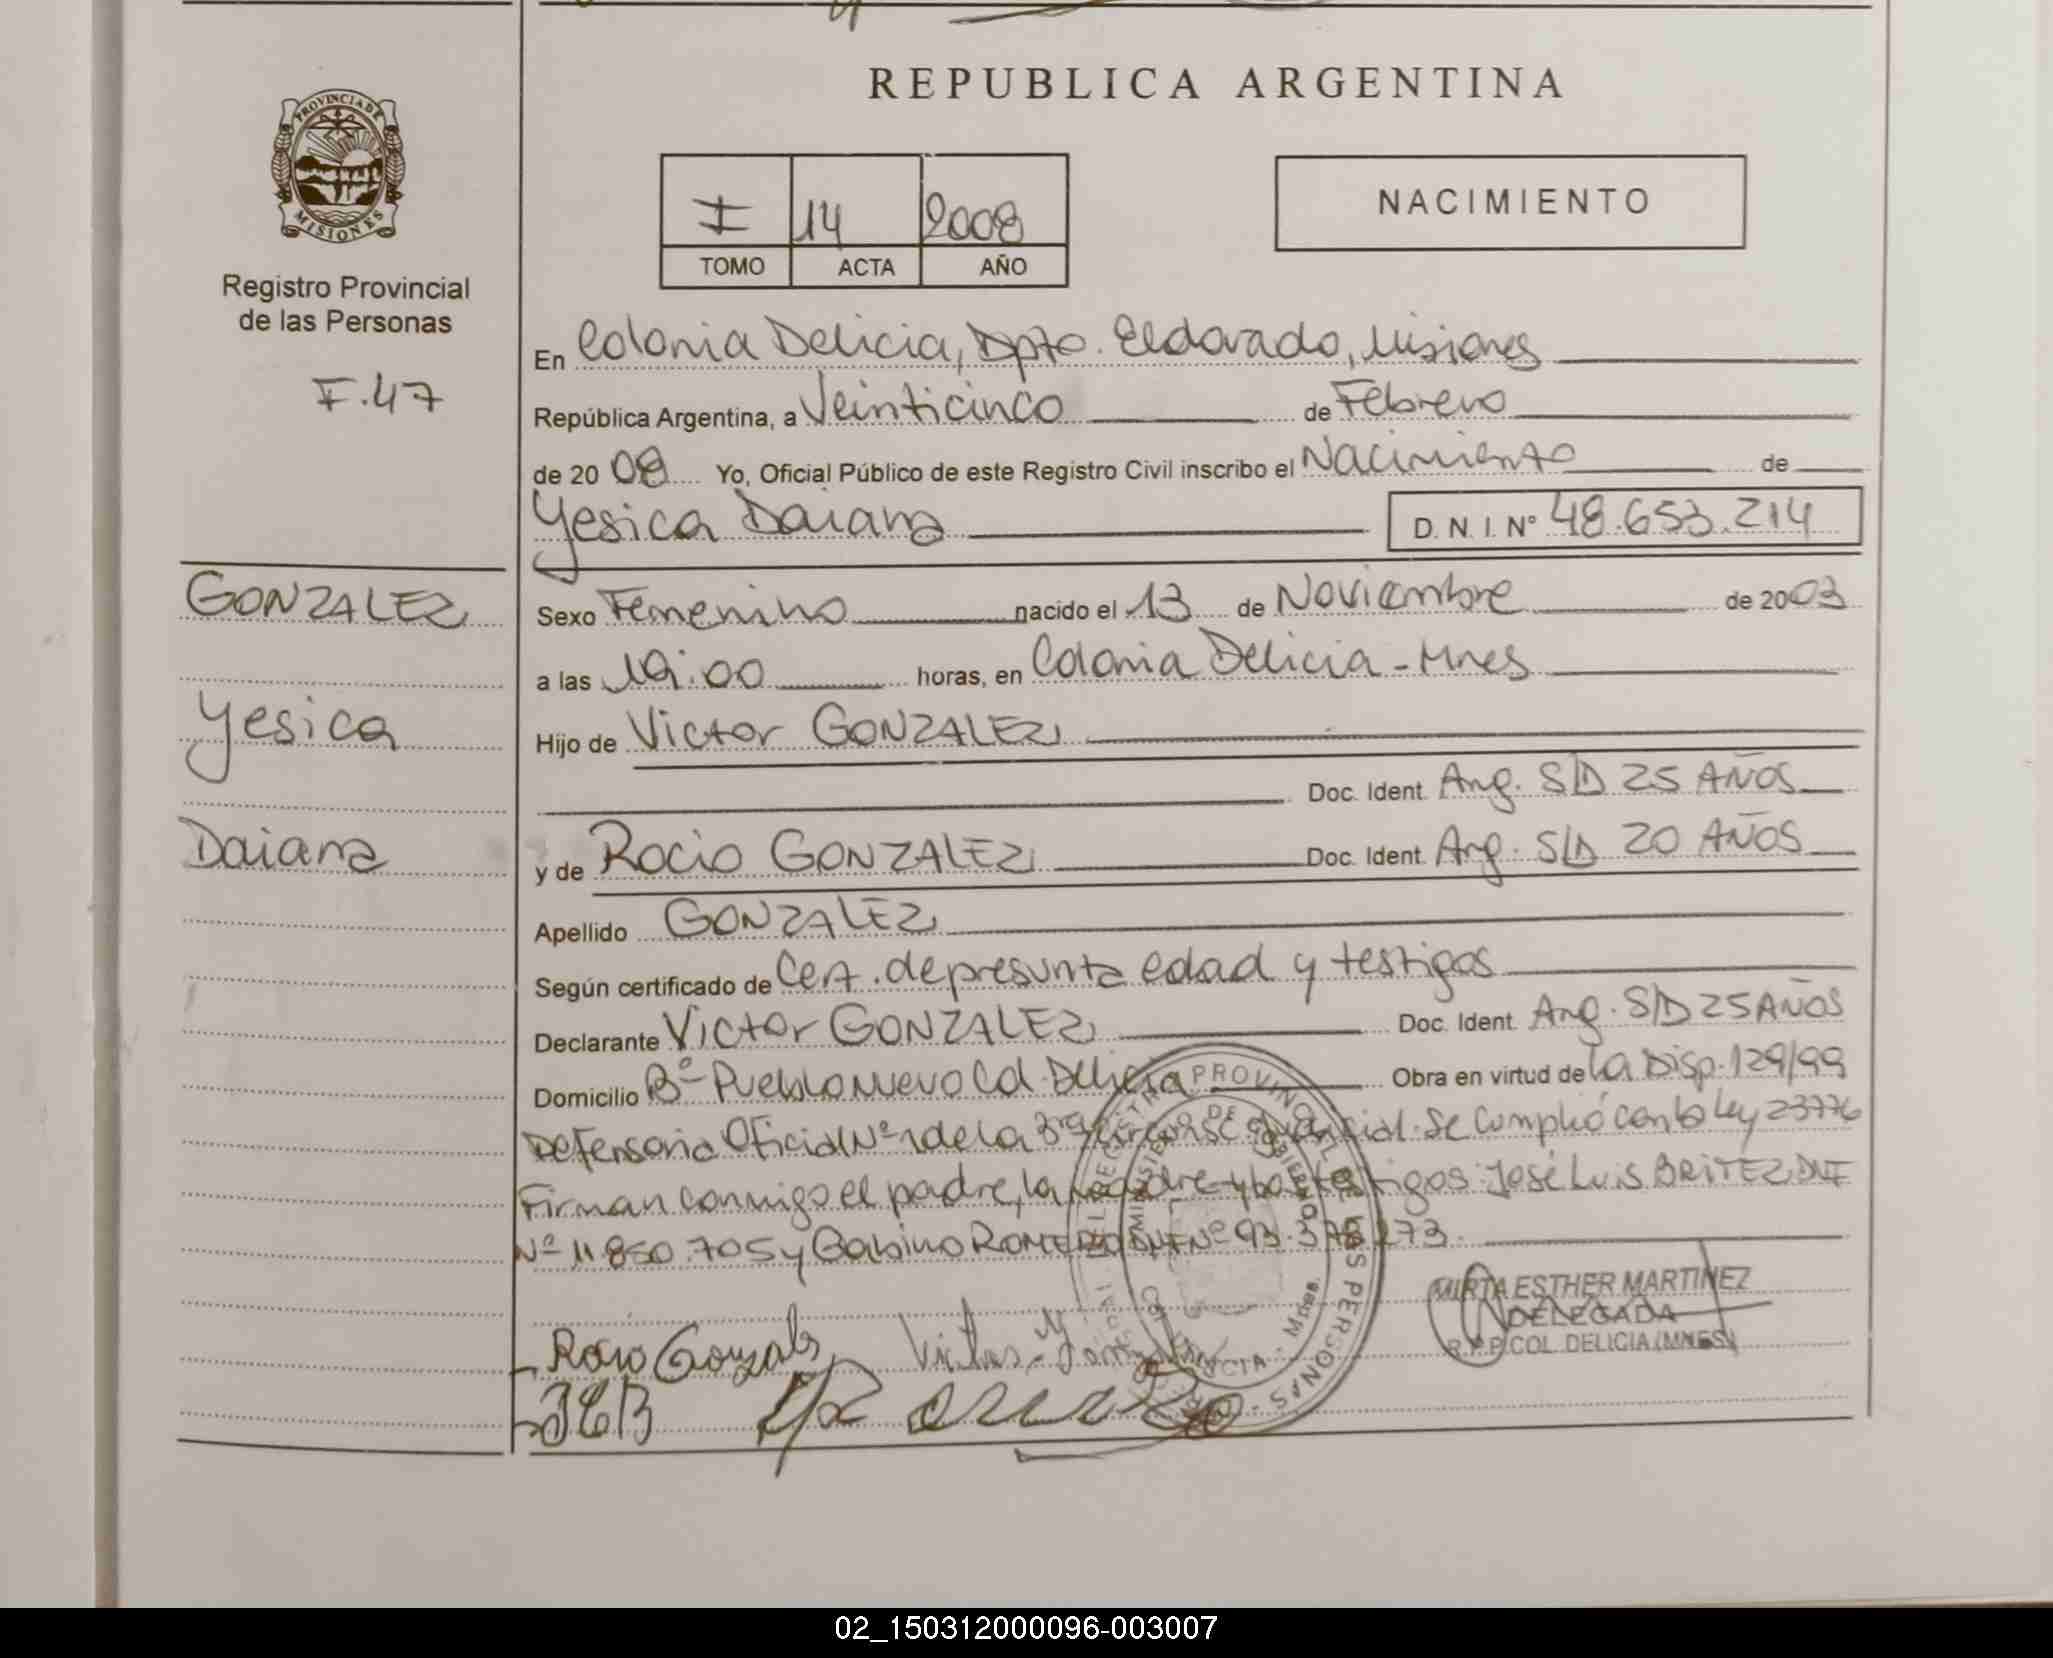 REPUBLICA ARGENTINA
PROVINCIA DE
MISIONES
Registro Provincial
de las Personas
F.47
I 14 2008
TOMO ACTA AÑO
NACIMIENTO
En Colonia Delicia, Dpto. Eldorado, Misiones
República Argentina, a Veinticinco de Febrero
de 2008 Yo, Oficial Público de este Registro Civil inscribo el Nacimiento de
Yesica Daiana D. N. I. N° 48.653.214
GONZALEZ
Yesica
Daiana
Sexo Femenino nacido el 13 de Noviembre de 2003
a las 19:00 horas, en Colonia Delicia - Mnes
Hijo de Victor GONZALEZ
Doc. Ident. Arg. S/D 25 AÑOS
y de Rocio GONZALEZ Doc. Ident. Arg. S/D 20 AÑOS
Apellido GONZALEZ
Según certificado de Cert. de presunta edad y testigos
Declarante Victor GONZALEZ Doc. Ident. Arg. S/D 25 AÑOS
Domicilio B° Pueblo Nuevo Col. Delicia Obra en virtud de la Disp. 129/99
Defensoria Oficial N° 1 de la 3ra Circunsc. Judicial. Se Cumplió con la Ley 23776
Firman conmigo el padre, la madre y los testigos: José Luis BRITEZ DNI
N° 11.850.705 y Gabino ROMERO DNI N° 93.378.273
REGISTRO PROVINCIAL DE LAS PERSONAS
MINISTERIO DE GOBIERNO
MIRTA ESTHER MARTINEZ
DELEGADA
R.P.P. COL. DELICIA (MNES)
Rocio Gonzalez
JLB
02_150312000096-003007